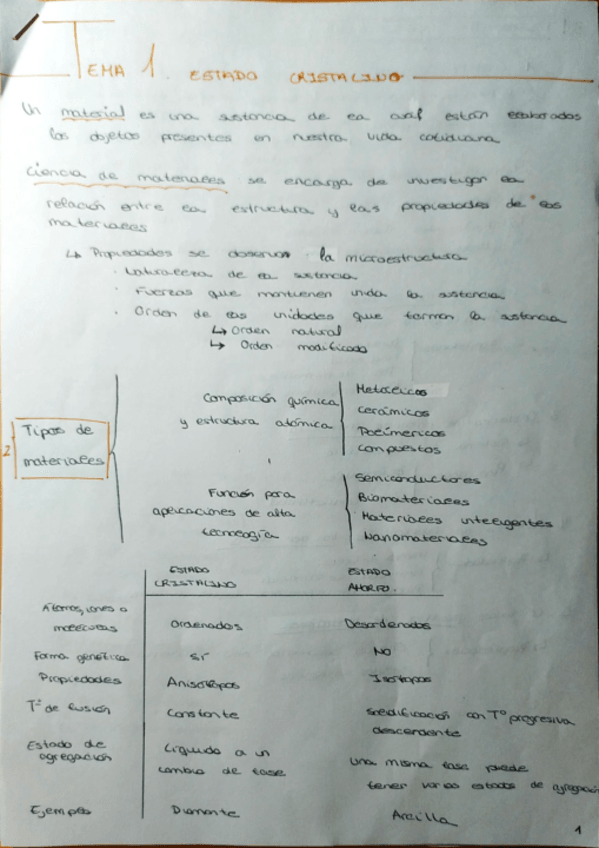 TEMA 1. ESTADO CRISTALINO
Un material es una sustancia de la cual están elaborados
los objetos presentes en nuestra vida cotidiana
Ciencia de materiales se encarga de investigar la
relación entre la estructura y las propiedades de los
materiales
↳ Propiedades se la microestructura
· Naturaleza de la sustancia
· Fuerzas que mantienen unida la sustancia
· Orden de las unidades que forman la sustancia
↳ Orden natural
↳ Orden modificado
Tipos de
materiales
Composición química
y estructura atómica
Metálicos
Cerámicos
Poliméricos
Compuestos
Función para
aplicaciones de alta
tecnología
Semiconductores
Biomateriales
Materiales inteligentes
Nanomateriales
ESTADO
CRISTALINO
ESTADO
AMORFO.
Átomos, iones o
moléculas
Ordenados
Desordenados
Forma genética
SÍ
NO
Propiedades
Anisótopos
Isótopos
Tº de fusión
Constante
Solidificación con Tº progresiva
descendente
Estado de
agregación
Líquido a un
cambio de fase
una misma fase puede
tener varios estados de agregación
Ejemplo
Diamante
Arcilla
1